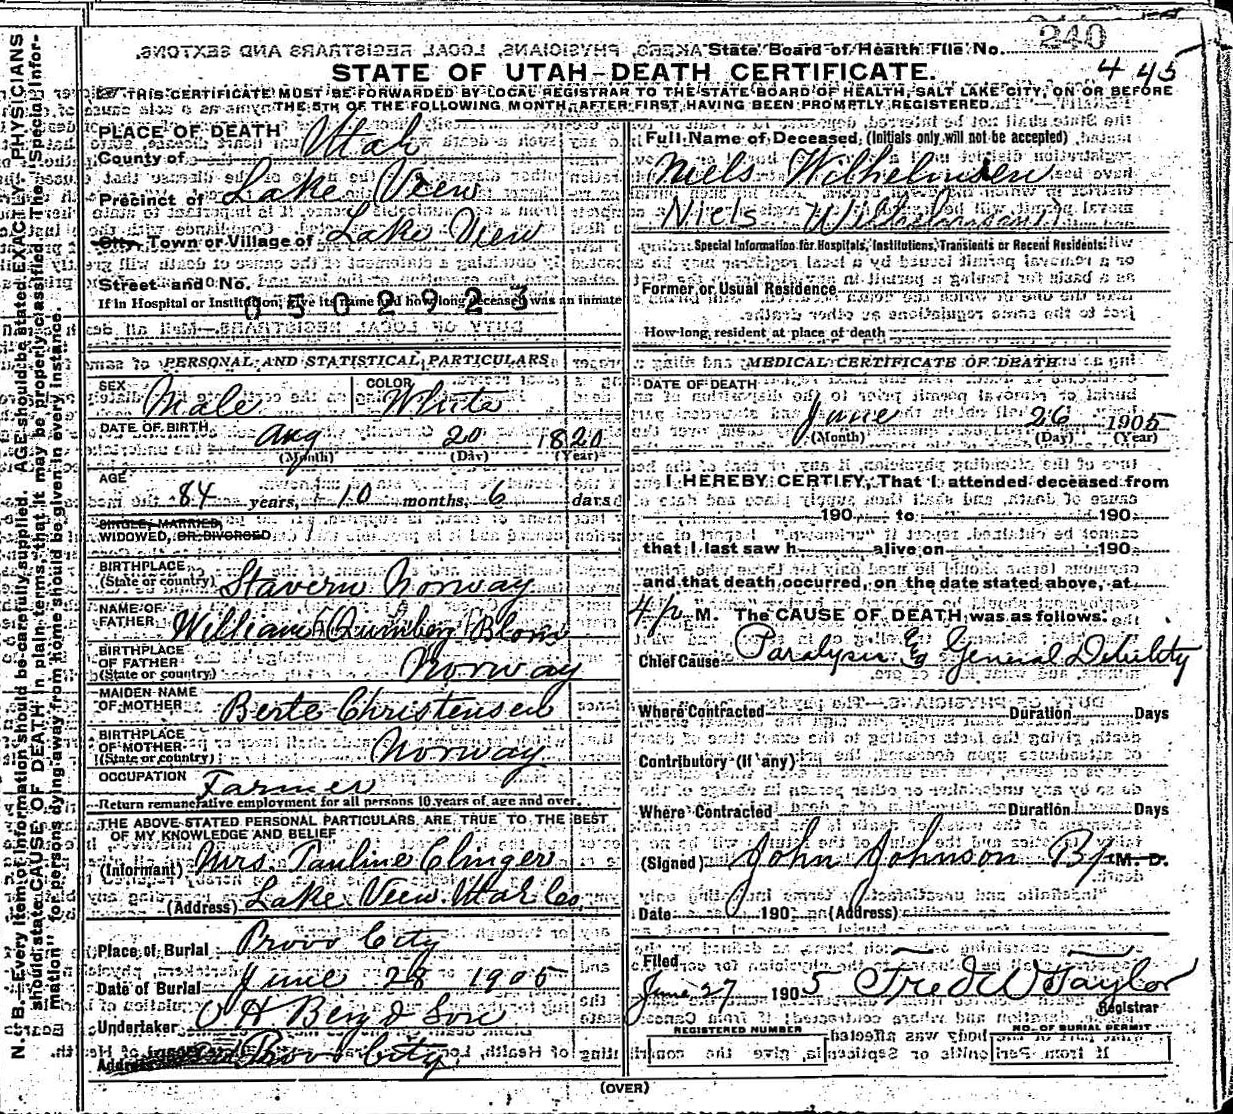 State Board of Health File No. 240
445
STATE OF UTAH—DEATH CERTIFICATE.
THIS CERTIFICATE MUST BE FORWARDED BY LOCAL REGISTRAR TO THE STATE BOARD OF HEALTH, SALT LAKE CITY, ON OR BEFORE
THE 5TH OF THE FOLLOWING MONTH, AFTER FIRST HAVING BEEN PROMPTLY REGISTERED.
PLACE OF DEATH
County of Utah
Precinct of Lake View
City, Town or Village of Lake View
Street and No.
If in Hospital or Institution, give its name and how long deceased was an inmate
0502923
PERSONAL AND STATISTICAL PARTICULARS
SEX Male COLOR White
DATE OF BIRTH Aug 20 1820
(Month) (Day) (Year)
AGE
84 years, 10 months, 6 days
SINGLE, MARRIED,
WIDOWED, OR DIVORCED
BIRTHPLACE
(State or country) Stavern Norway
NAME OF
FATHER William Blom
BIRTHPLACE
OF FATHER
(State or country) Norway
MAIDEN NAME
OF MOTHER Berte Christensen
BIRTHPLACE
OF MOTHER
(State or country) Norway
OCCUPATION Farmer
Return remunerative employment for all persons 10 years of age and over.
THE ABOVE STATED PERSONAL PARTICULARS ARE TRUE TO THE BEST
OF MY KNOWLEDGE AND BELIEF
(Informant) Mrs. Pauline Clinger
(Address) Lake View Utah Co,
Place of Burial Provo City
Date of Burial June 28 1905
Undertaker O H Berg & Son
Address Provo City
Full Name of Deceased, (Initials only will not be accepted)
Niels Wilhelmsen
Niels
Special Information for Hospitals, Institutions, Transients or Recent Residents:
Former or Usual Residence
How long resident at place of death
MEDICAL CERTIFICATE OF DEATH
DATE OF DEATH
June 26 1905
(Month) (Day) (Year)
I HEREBY CERTIFY, That I attended deceased from
190 to 190
that I last saw h alive on 190
and that death occurred, on the date stated above, at
4 p. M. The CAUSE OF DEATH was as follows:
Chief Cause Paralysis & General Debility
Where Contracted Duration Days
Contributory (If any)
Where Contracted Duration Days
(Signed) John Johnson Bp M. D.
Date 190 (Address)
Filed
June 27 1905 Fred W Taylor
Registrar
REGISTERED NUMBER
NO. OF BURIAL PERMIT
(OVER)
N. B.—Every item of information should be carefully supplied. AGE should be stated EXACTLY. PHYSICIANS
should state CAUSE OF DEATH in plain terms, that it may be properly classified. The "Special Infor-
mation" for persons dying away from home should be given in every instance.